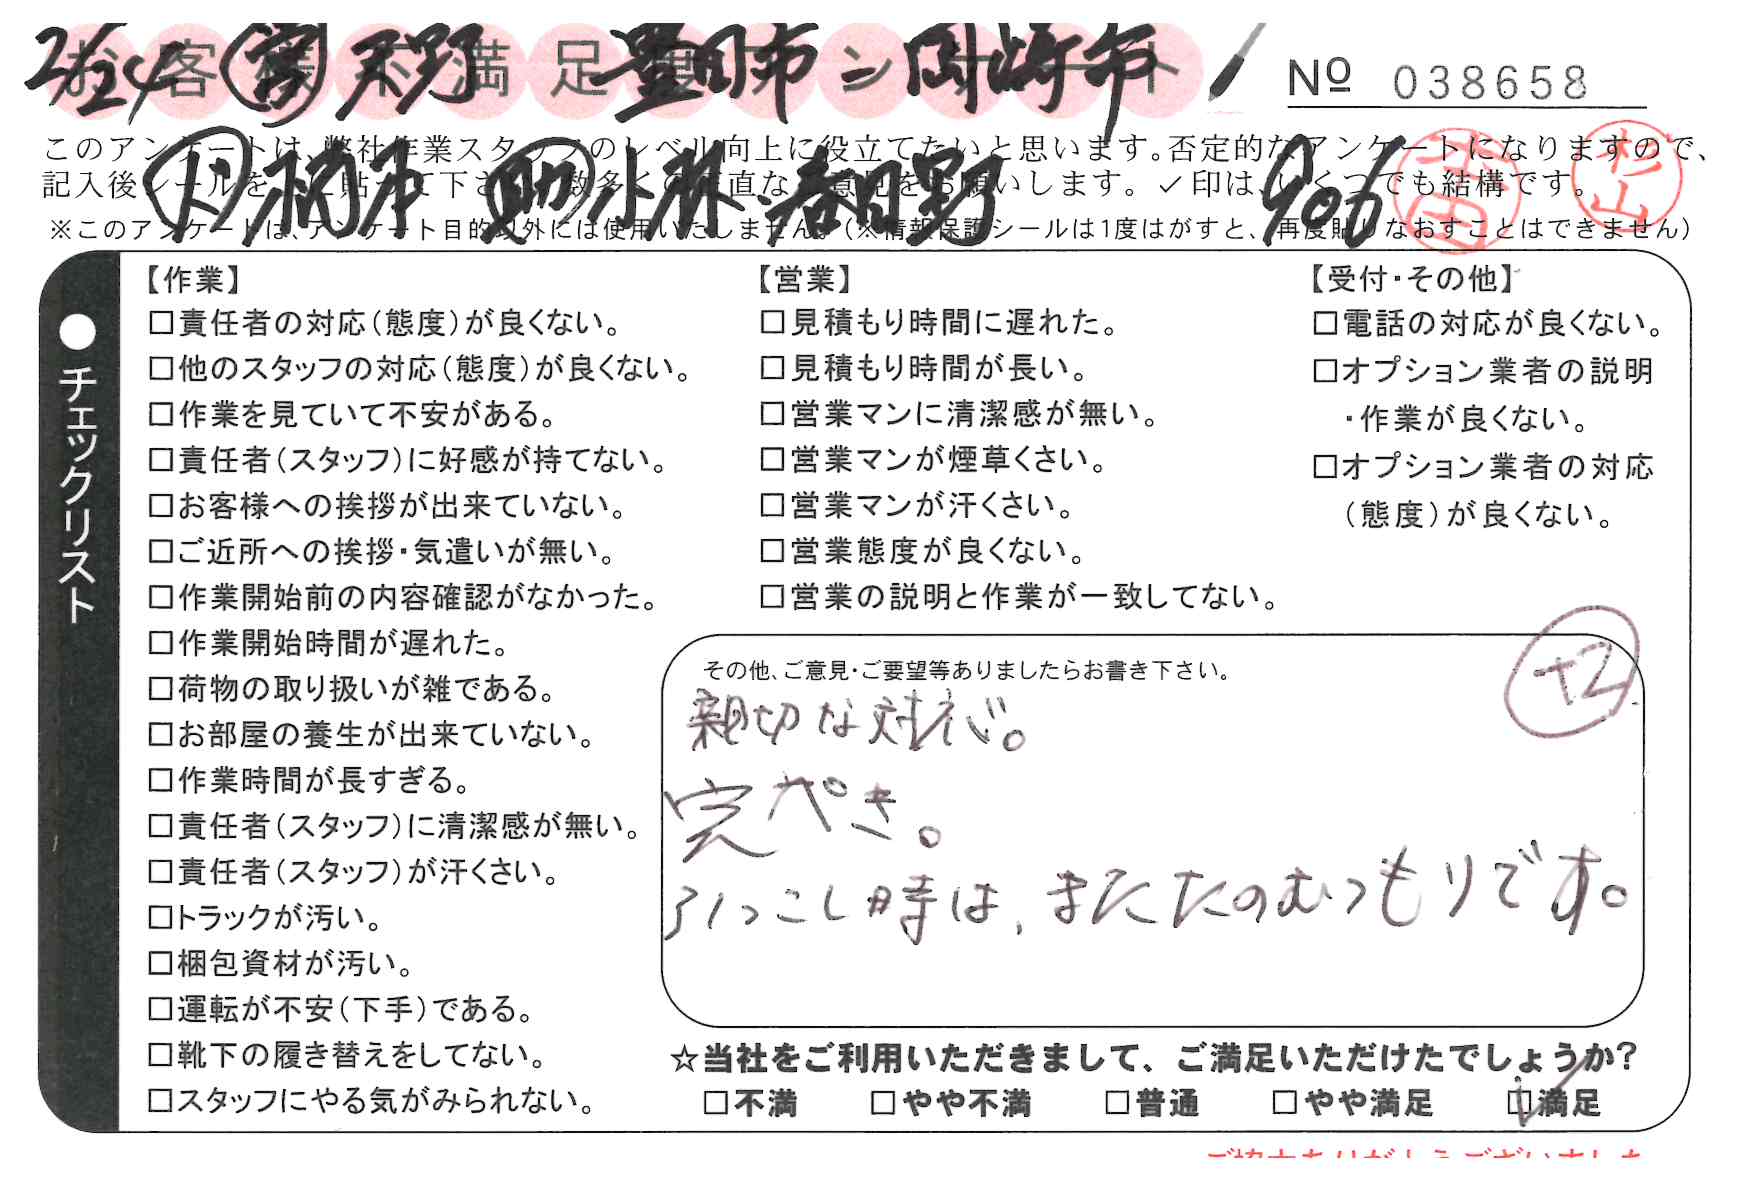 お客様不満足度アンケート
2/24 客 天野 豊田市 = 岡崎市
№ 038658
このアンケートは、弊社作業スタッフのレベル向上に役立てたいと思います。否定的なアンケートになりますので、
記入後シールを 貼って下さい。数多くの正直なご意見をお願いします。✓印は、いくつでも結構です。
小林・春日野 906
杉山
※このアンケートは、アンケート目的以外には使用いたしません。(※情報保護シールは1度はがすと、再度貼りなおすことはできません)
●チェックリスト
【作業】
□責任者の対応(態度)が良くない。
□他のスタッフの対応(態度)が良くない。
□作業を見ていて不安がある。
□責任者(スタッフ)に好感が持てない。
□お客様への挨拶が出来ていない。
□ご近所への挨拶・気遣いが無い。
□作業開始前の内容確認がなかった。
□作業開始時間が遅れた。
□荷物の取り扱いが雑である。
□お部屋の養生が出来ていない。
□作業時間が長すぎる。
□責任者(スタッフ)に清潔感が無い。
□責任者(スタッフ)が汗くさい。
□トラックが汚い。
□梱包資材が汚い。
□運転が不安(下手)である。
□靴下の履き替えをしてない。
□スタッフにやる気がみられない。
【営業】
□見積もり時間に遅れた。
□見積もり時間が長い。
□営業マンに清潔感が無い。
□営業マンが煙草くさい。
□営業マンが汗くさい。
□営業態度が良くない。
□営業の説明と作業が一致してない。
【受付・その他】
□電話の対応が良くない。
□オプション業者の説明
・作業が良くない。
□オプション業者の対応
(態度)が良くない。
その他、ご意見・ご要望等ありましたらお書き下さい。
+2
親切な対応。
完ペき。
引っこし時は、またたのむつもりです。
☆当社をご利用いただきまして、ご満足いただけたでしょうか?
□不満 □やや不満 □普通 □やや満足 ☑満足
ご協力ありがとうございました